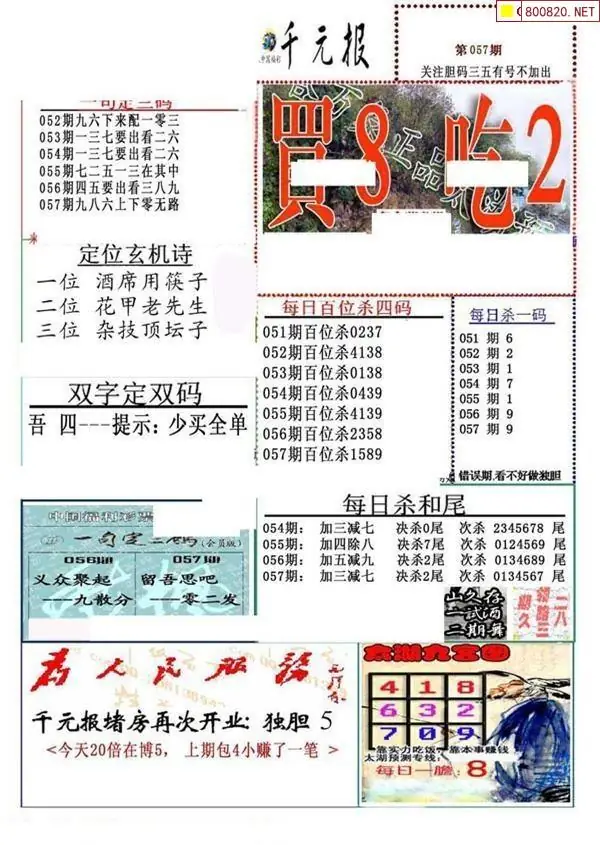 800820.NET
千元报
第057期
关注胆码三五有号不加出
一句定三码
052期九六下来配一零三
053期一三七要出看二六
054期一三七要出看二六
055期七二五一三在其中
056期四五要出看三八九
057期九八六上下零无路
買8 吃2
定位玄机诗
一位 酒席用筷子
二位 花甲老先生
三位 杂技顶坛子
双字定双码
吾 四---提示: 少买全单
每日百位杀四码
051期百位杀0237
052期百位杀4138
053期百位杀0138
054期百位杀0439
055期百位杀4139
056期百位杀2358
057期百位杀1589
每日杀一码
051 期 6
052 期 2
053 期 1
054 期 7
055 期 1
056 期 9
057 期 9
错误期,看不好做独胆
每日杀和尾
054期: 加三减七 决杀0尾 次杀 2345678 尾
055期: 加四除八 决杀7尾 次杀 0124569 尾
056期: 加五减九 决杀2尾 次杀 0134689 尾
057期: 加三减七 决杀2尾 次杀 0134567 尾
中国福利彩票
一句定二码(会员版)
056期
义众聚起
—九散分
057期
留吾思吧
—零二发
为人民服务
千元报堵房再次开业: 独胆 5
<今天20倍在博5， 上期包4小赚了一笔 >
太湖九宫图
4 1 8
6 3 2
7 0 9
靠实力吃饭，靠本事赚钱
太湖预测专线:
每日一胆: 8